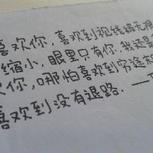 喜欢你,喜欢到视线越来
缩小,眼里只有你,我还是
你,哪怕喜欢到穷途
喜欢到没有退路.——